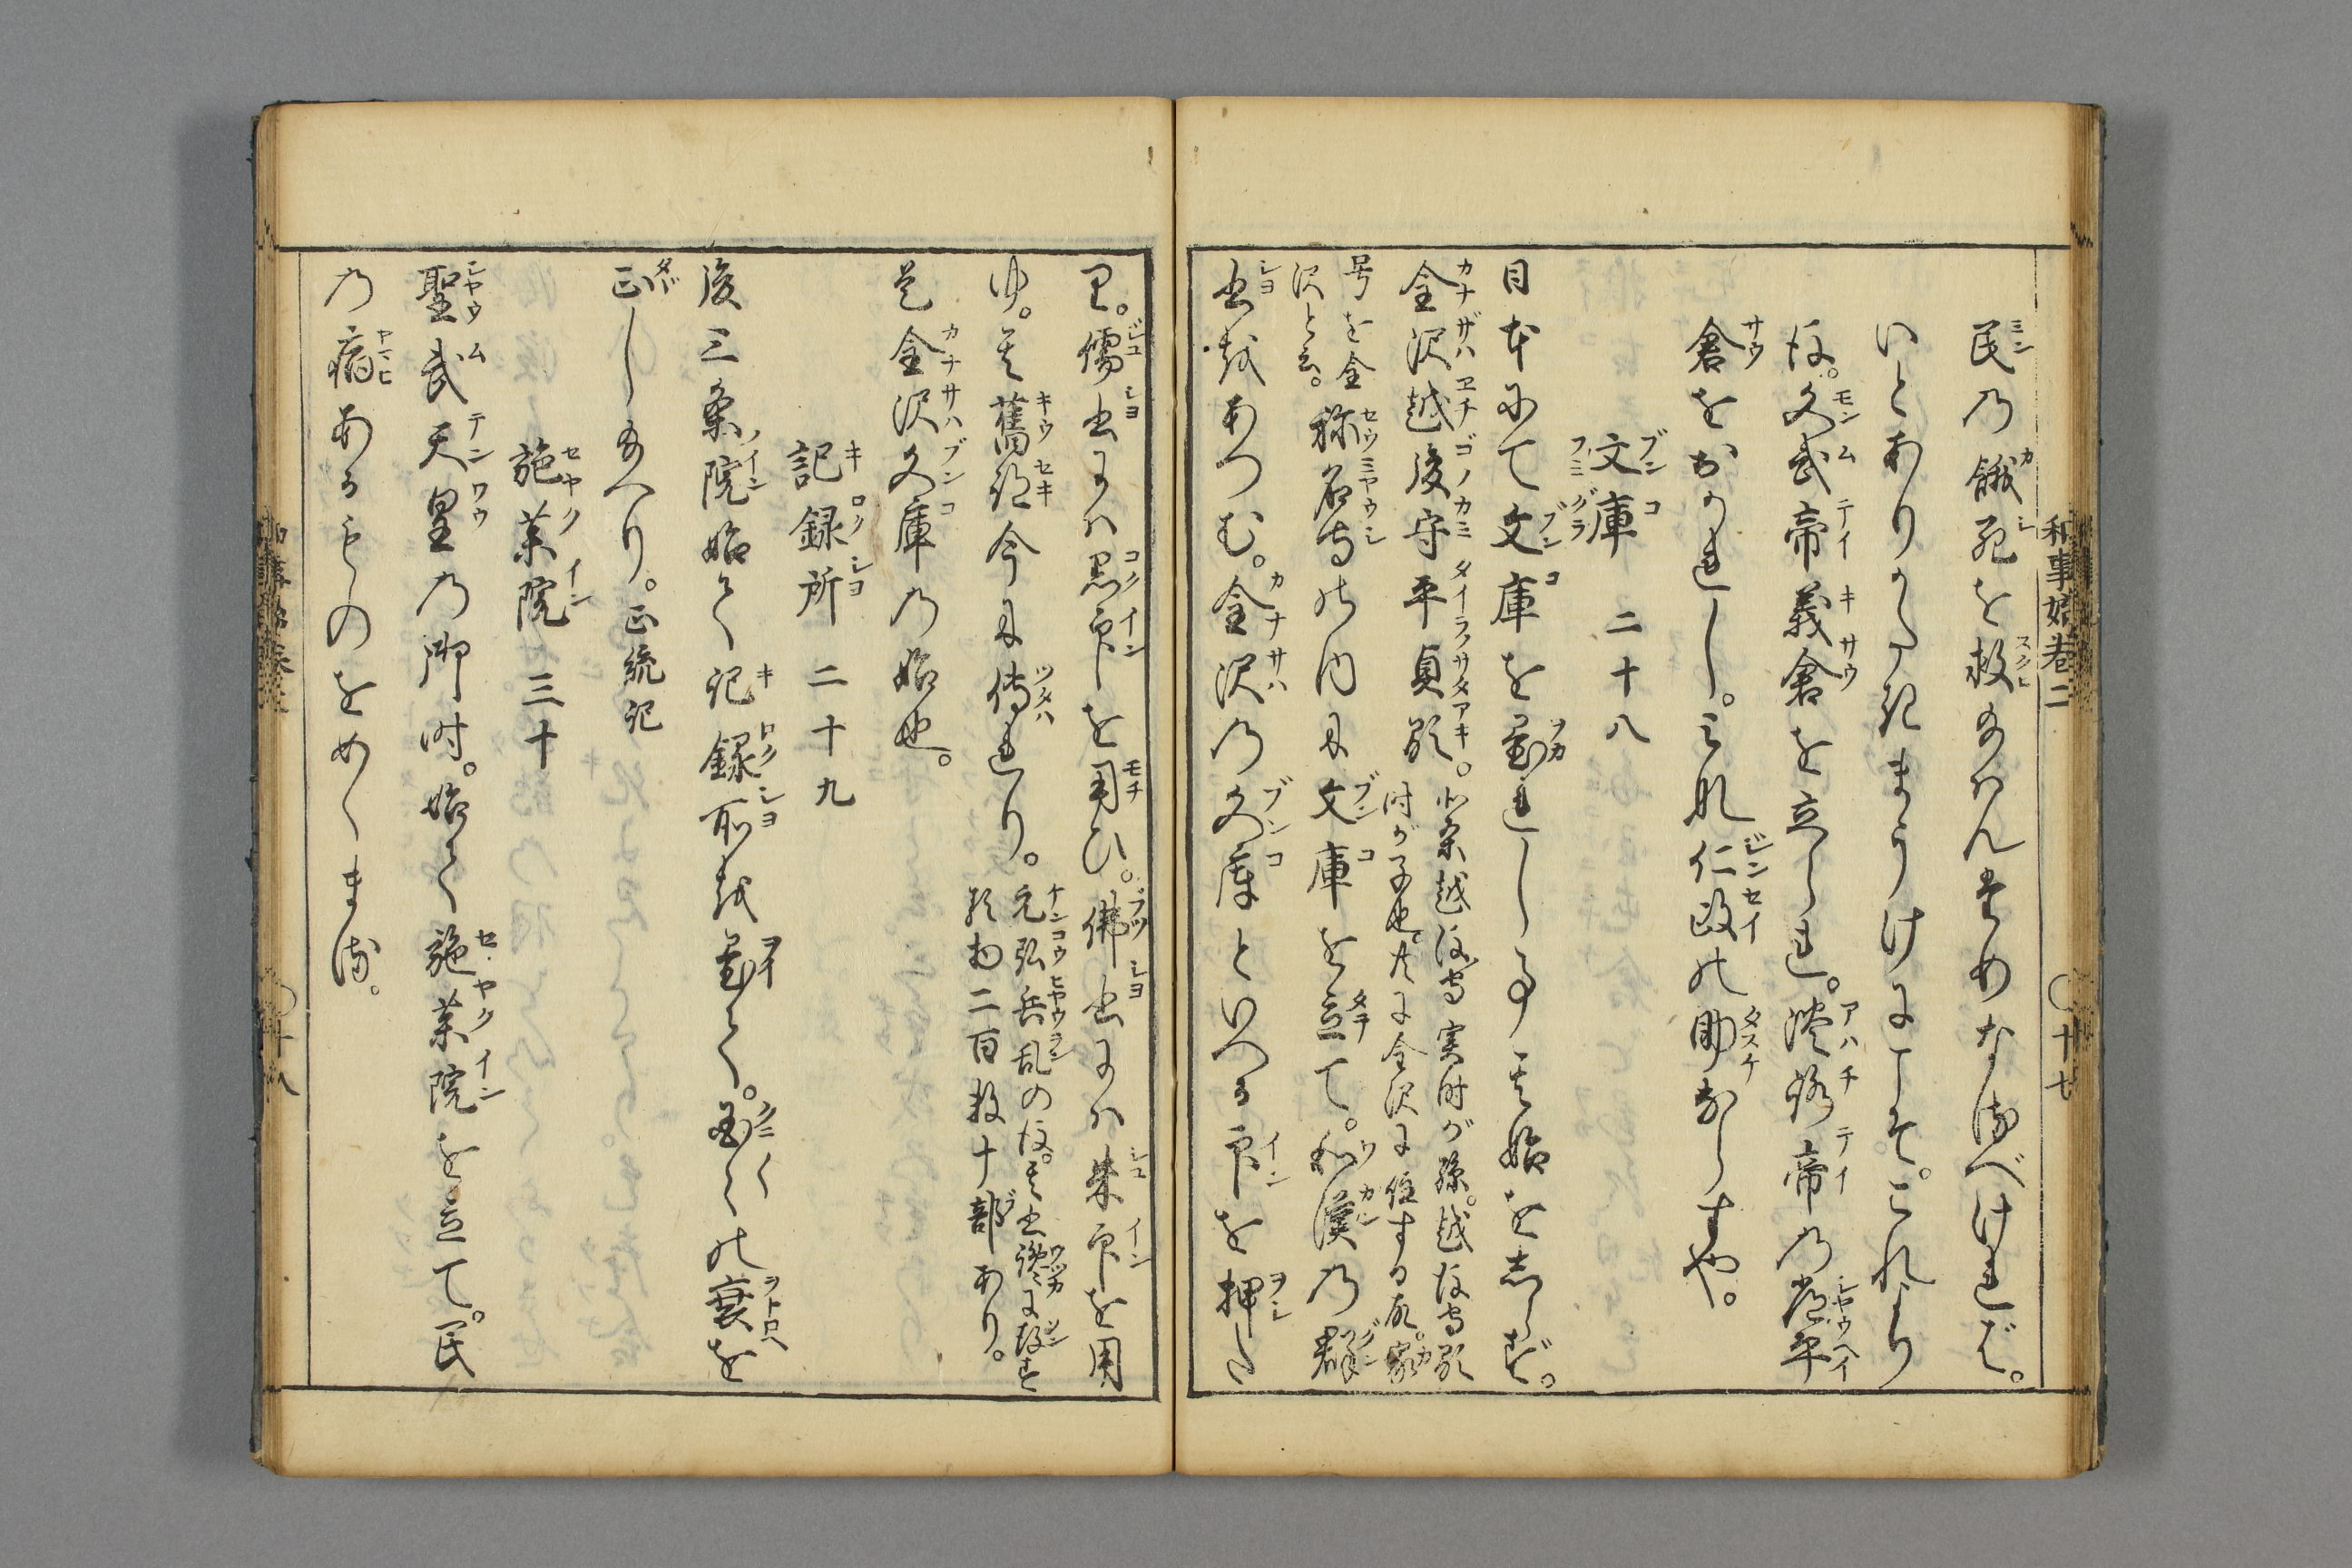 民の餓死を救給はんためなるべければ。
いとありがたきまうけにこそ。これより
後。文武帝義倉を立られ。淡路帝の常平
倉をおかれし。みな仁政の助ならずや。
文庫 二十八
日本にて文庫を置れし事其始をしらず。
金沢越後守平貞顕。
北条越後守実時が孫。越後守顕
時が子也。代々金沢に住する故。家
号を金
沢と云。
称名寺の内に文庫を立て。和漢の群
書をあつむ。金沢の文庫といへる印を押た
り。儒書には黒印を用ひ。佛書には朱印を用
ゆ。其舊跡今に傳れり。
元弘兵乱の後。其書纔に
二百
十部あり。
是金沢文庫の始也。
記録所 二十九
後三条院始て記録所を置て。国〱の衰を
正し給へり。正統記
施薬院 三十
聖武天皇の御時。始て施薬院を立て。民
の病あるものをめぐまる。
和事始巻二
〇十七